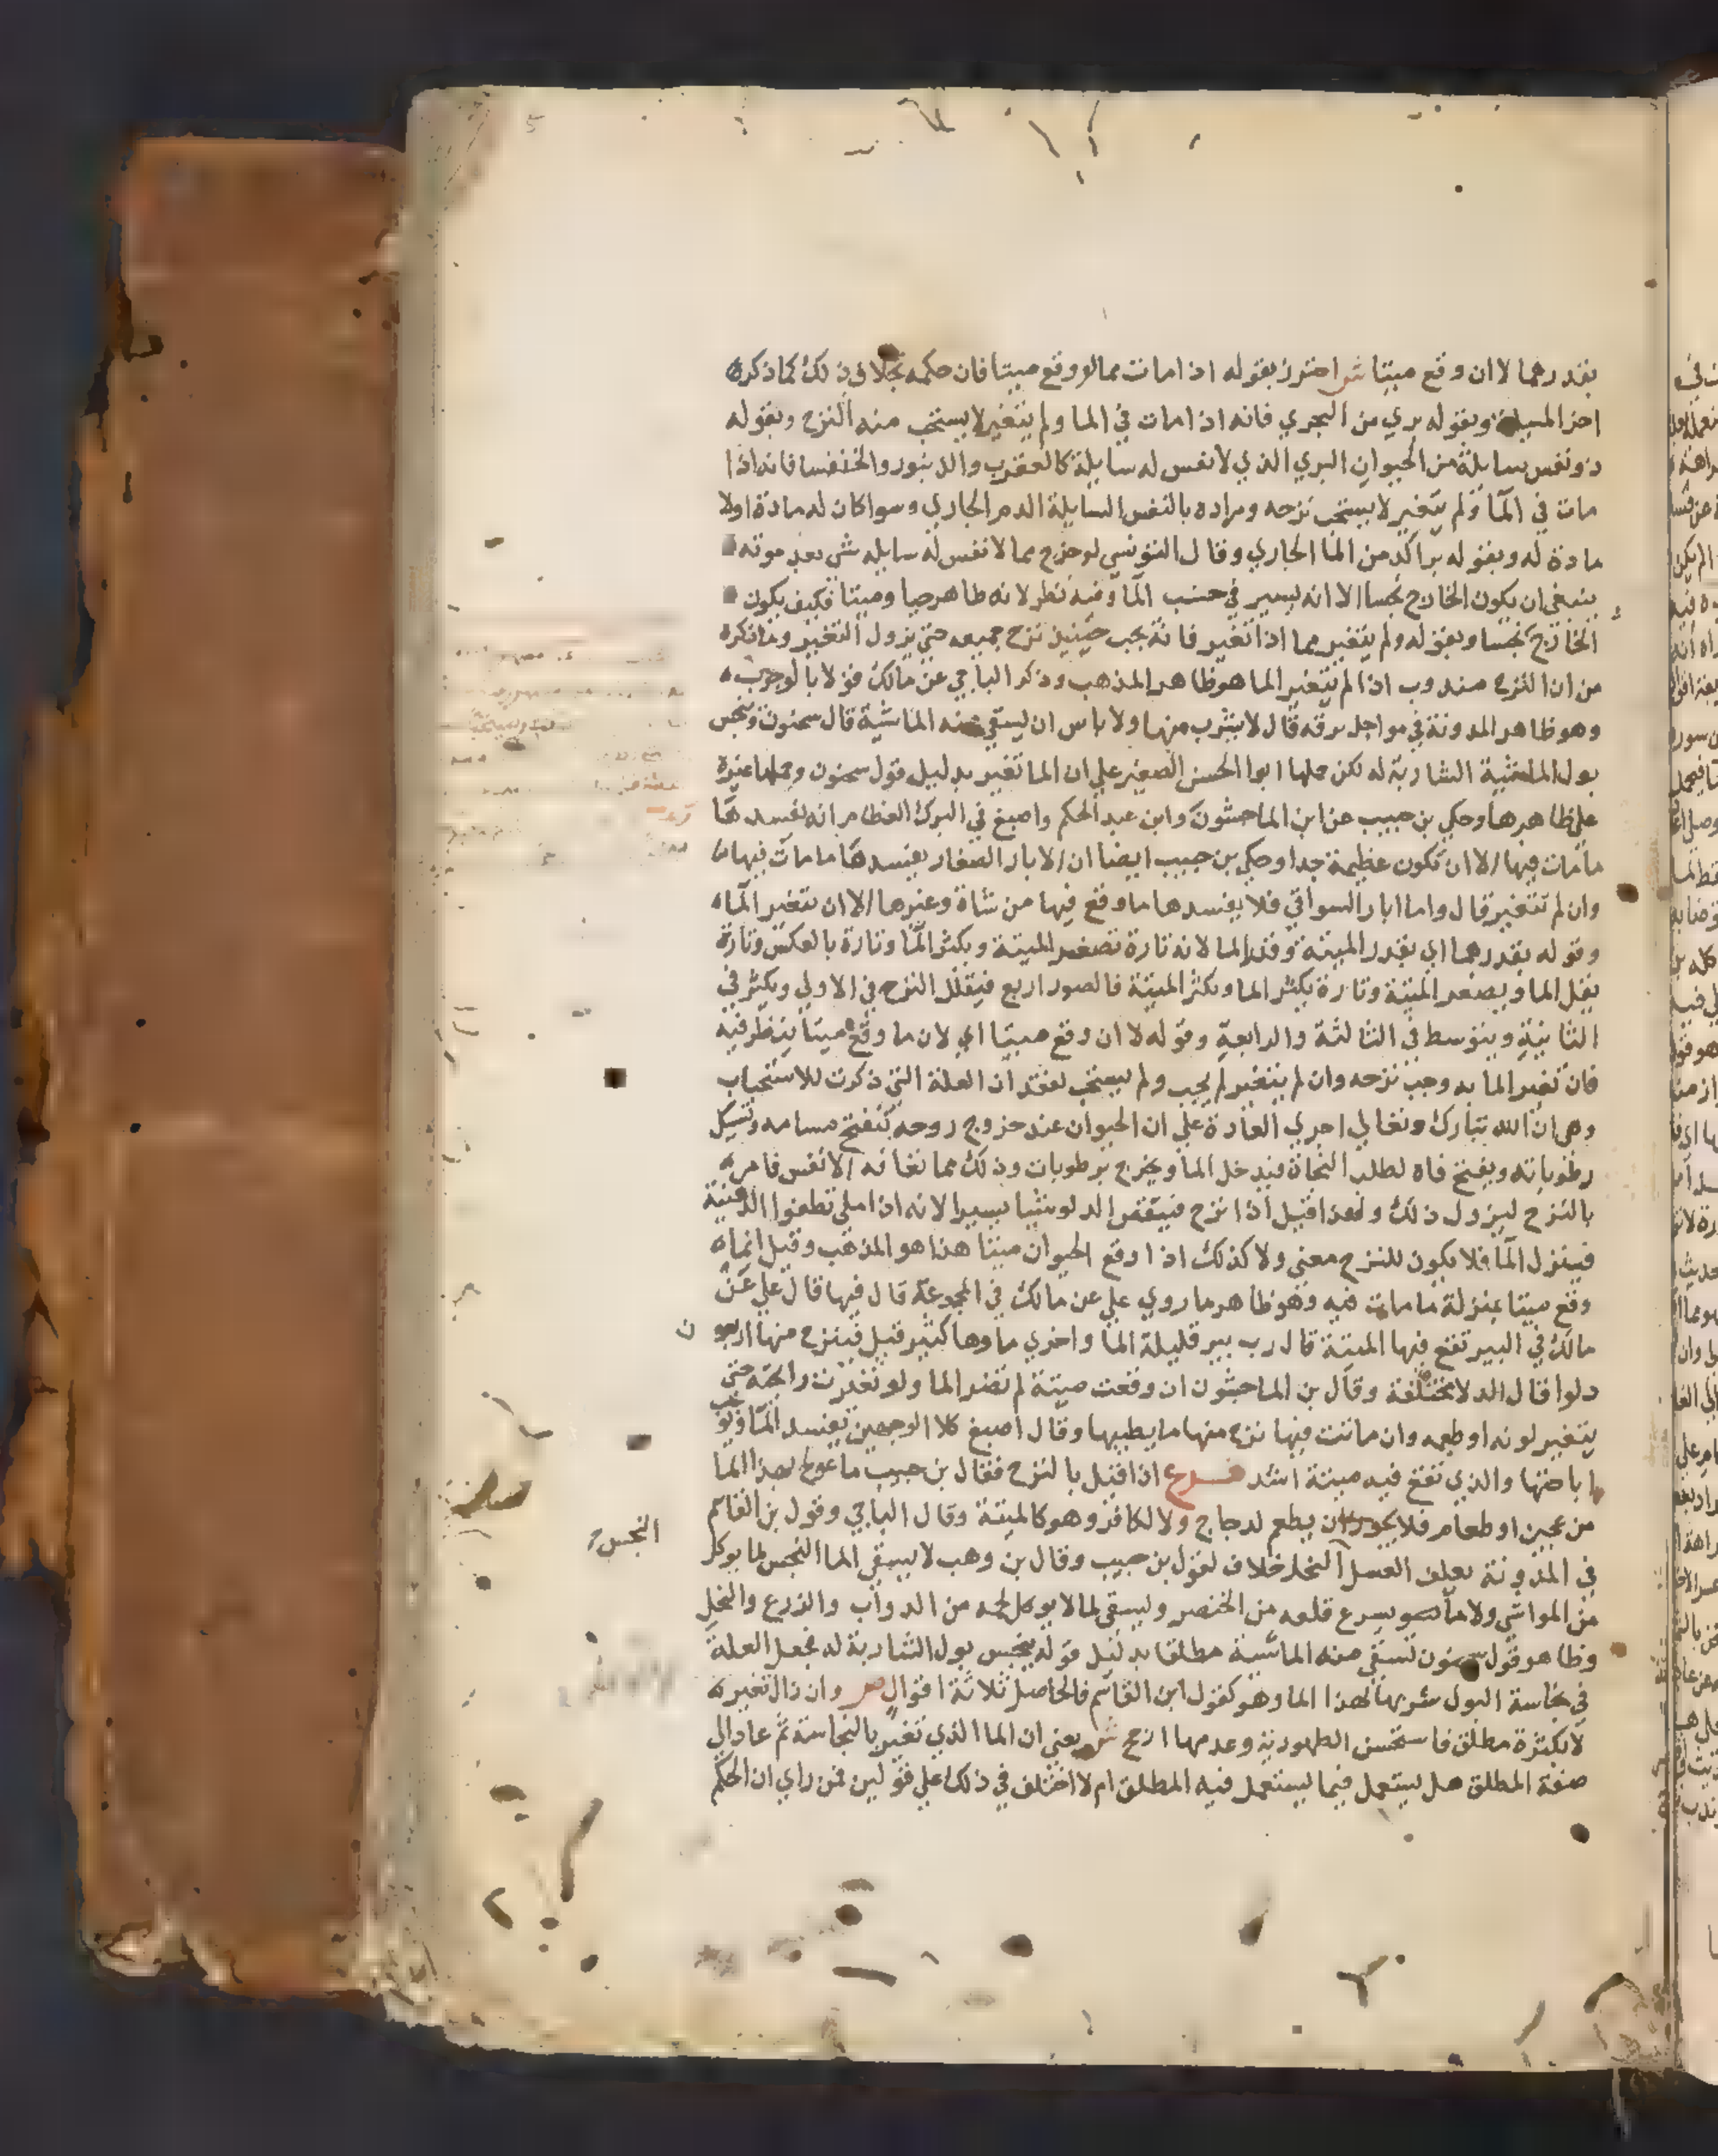 بقدرهما لا ان وقع ميتا ش احترز بقوله اذا مات مما لو وقع ميتا فان حكمه بخلاف ذلك كما ذكره
اخر المسيلة وبقوله بري من البحري فانه اذا مات في الما ولم يتغير لا يستحب منه النزح وبقوله
ذو نفس سايلة من الحيوان البري الذي لا نفس له سايلة كالعقرب والدنبور والخنفسا فانه اذا
مات في الما ولم يتغير لا يستحب نزحه ومراده بالنفس السايلة الدم الجاري وسوا كان له مادة اولا
مادة له وبقوله براكد من الما الجاري وقال التونسي لو خرج مما لا نفس له سايله شي بعد موته
ينبغي ان يكون الخارج نجسا الا انه يسير في حسب الما وفيه نظر لانه طاهر حيا وميتا فكيف يكون
الخارج نجسا وبقوله ولم يتغير مما اذا تغير فانه يجب حينيذ نزح جميعه حتي يزول التغير وما ذكره
من ان النزح مندوب اذا لم يتغير الما هو ظاهر المذهب وذكر الباجي عن مالك قولا بالوجوب
وهو ظاهر المدونة في مواجل برقه قال لا يشرب منها ولا باس ان يسقي منه الماشية قال سحنون ونجس
بول الماشية الشاربة له لكن حملها ابوا الحسن الصغير علي ان الما تغير بدليل قول سحنون وحملها غيره
علي ظاهرها وحكي بن حبيب عن ابن الماجشون وابن عبد الحكم واصبغ في البرك العظام انه يفسدها
ما مات فيها الا ان تكون عظيمة جدا وحكي بن حبيب ايضا ان الابار الصغار يفسدها ما مات فيها
وان لم تتغير قال واما ابار السواقي فلا يفسدها ما وقع فيها من شاة وغيرها الا ان يتغير الما
وقوله بقدرهما اي بقدر الميتة وقدر الما لانه تارة تصغر الميتة ويكثر الما وتارة بالعكس وتارة
يقل الما ويصغر الميتة وتارة يكثر الما وتكثر الميتة فالصور اربع فيقلل النزح في الاولي ويكثر في
الثانية ويتوسط في الثالثة والرابعة وقوله لا ان وقع ميتا اي لان ما وقع ميتا ينظر فيه
فان تغير الما به وجب نزحه وان لم يتغير لم يجب ولم يستحب لفقد ان العلة التي ذكرت للاستحباب
وهي ان الله تبارك وتعالي اجري العادة علي ان الحيوان عند خروج روحه تنفتح مسامه وتسيل
رطوباته ويفتح فاه لطلب النجاة فيدخل الما ويخرج برطوبات وذلك مما تعافه الانفس فامر
بالنزح ليزول ذلك ولهذا قيل اذا نزح فينقص الدلو شيا يسيرا لانه اذا املي تطفوا الدهنية
فينزل الما فلا يكون للنزح معني ولا كذلك اذا وقع الحيوان ميتا هذا هو المذهب وقيل انما
وقع ميتا بمنزلة ما مات فيه وهو ظاهر ما روي علي عن مالك في المجموعة قال فيها قال علي عن
مالك في البير تقع فيها الميتة قال رب بير قليلة الما واخري ماوها كثير قيل فينزح منها اربعون
دلوا قال الدلا مختلفة وقال بن الماجشون ان وقعت ميتة لم تضر الما ولو تغيرت رايحته حتي
يتغير لونه او طعمه وان ماتت فيها نزح منها ما يطيبها وقال اصبغ كلا الوجهين يفسد الما
اباحتها والذي تقع فيه ميتة اشد فرع اذا قيل بالنزح فقال بن حبيب ما عولج بهذا الما
من عجين او طعام فلا يجوز ان يطعم لدجاج ولا لكافر وهو كالميتة وقال الباجي وقول بن القاسم
النجس
في المدونة يعلف العسل النحل خلاف لقول بن حبيب وقال بن وهب لا يسقي الما النجس لما يوكل
من المواشي ولا ما يسرع قلعه من الخضر ويسقي لما لا يوكل لحمه من الدواب والزرع والنخل
وظاهر قول سحنون تسقي منه الماشية مطلقا بدليل قوله ينجس بول الشاربة له فجعل العلة
في نجاسة البول شربها لهذا الما وهو كقول ابن القاسم فالحاصل ثلاثة اقوال ص وان زال تغيره
لا بكثرة مطلق فاستحسن الطهورية وعدمها ارجح ش يعني ان الما الذي تغير بالنجاسة ثم عاد الي
صفة المطلق هل يستعمل فيما يستعمل فيه المطلق ام لا اختلف في ذلك علي قولين فمن راي ان الحكم